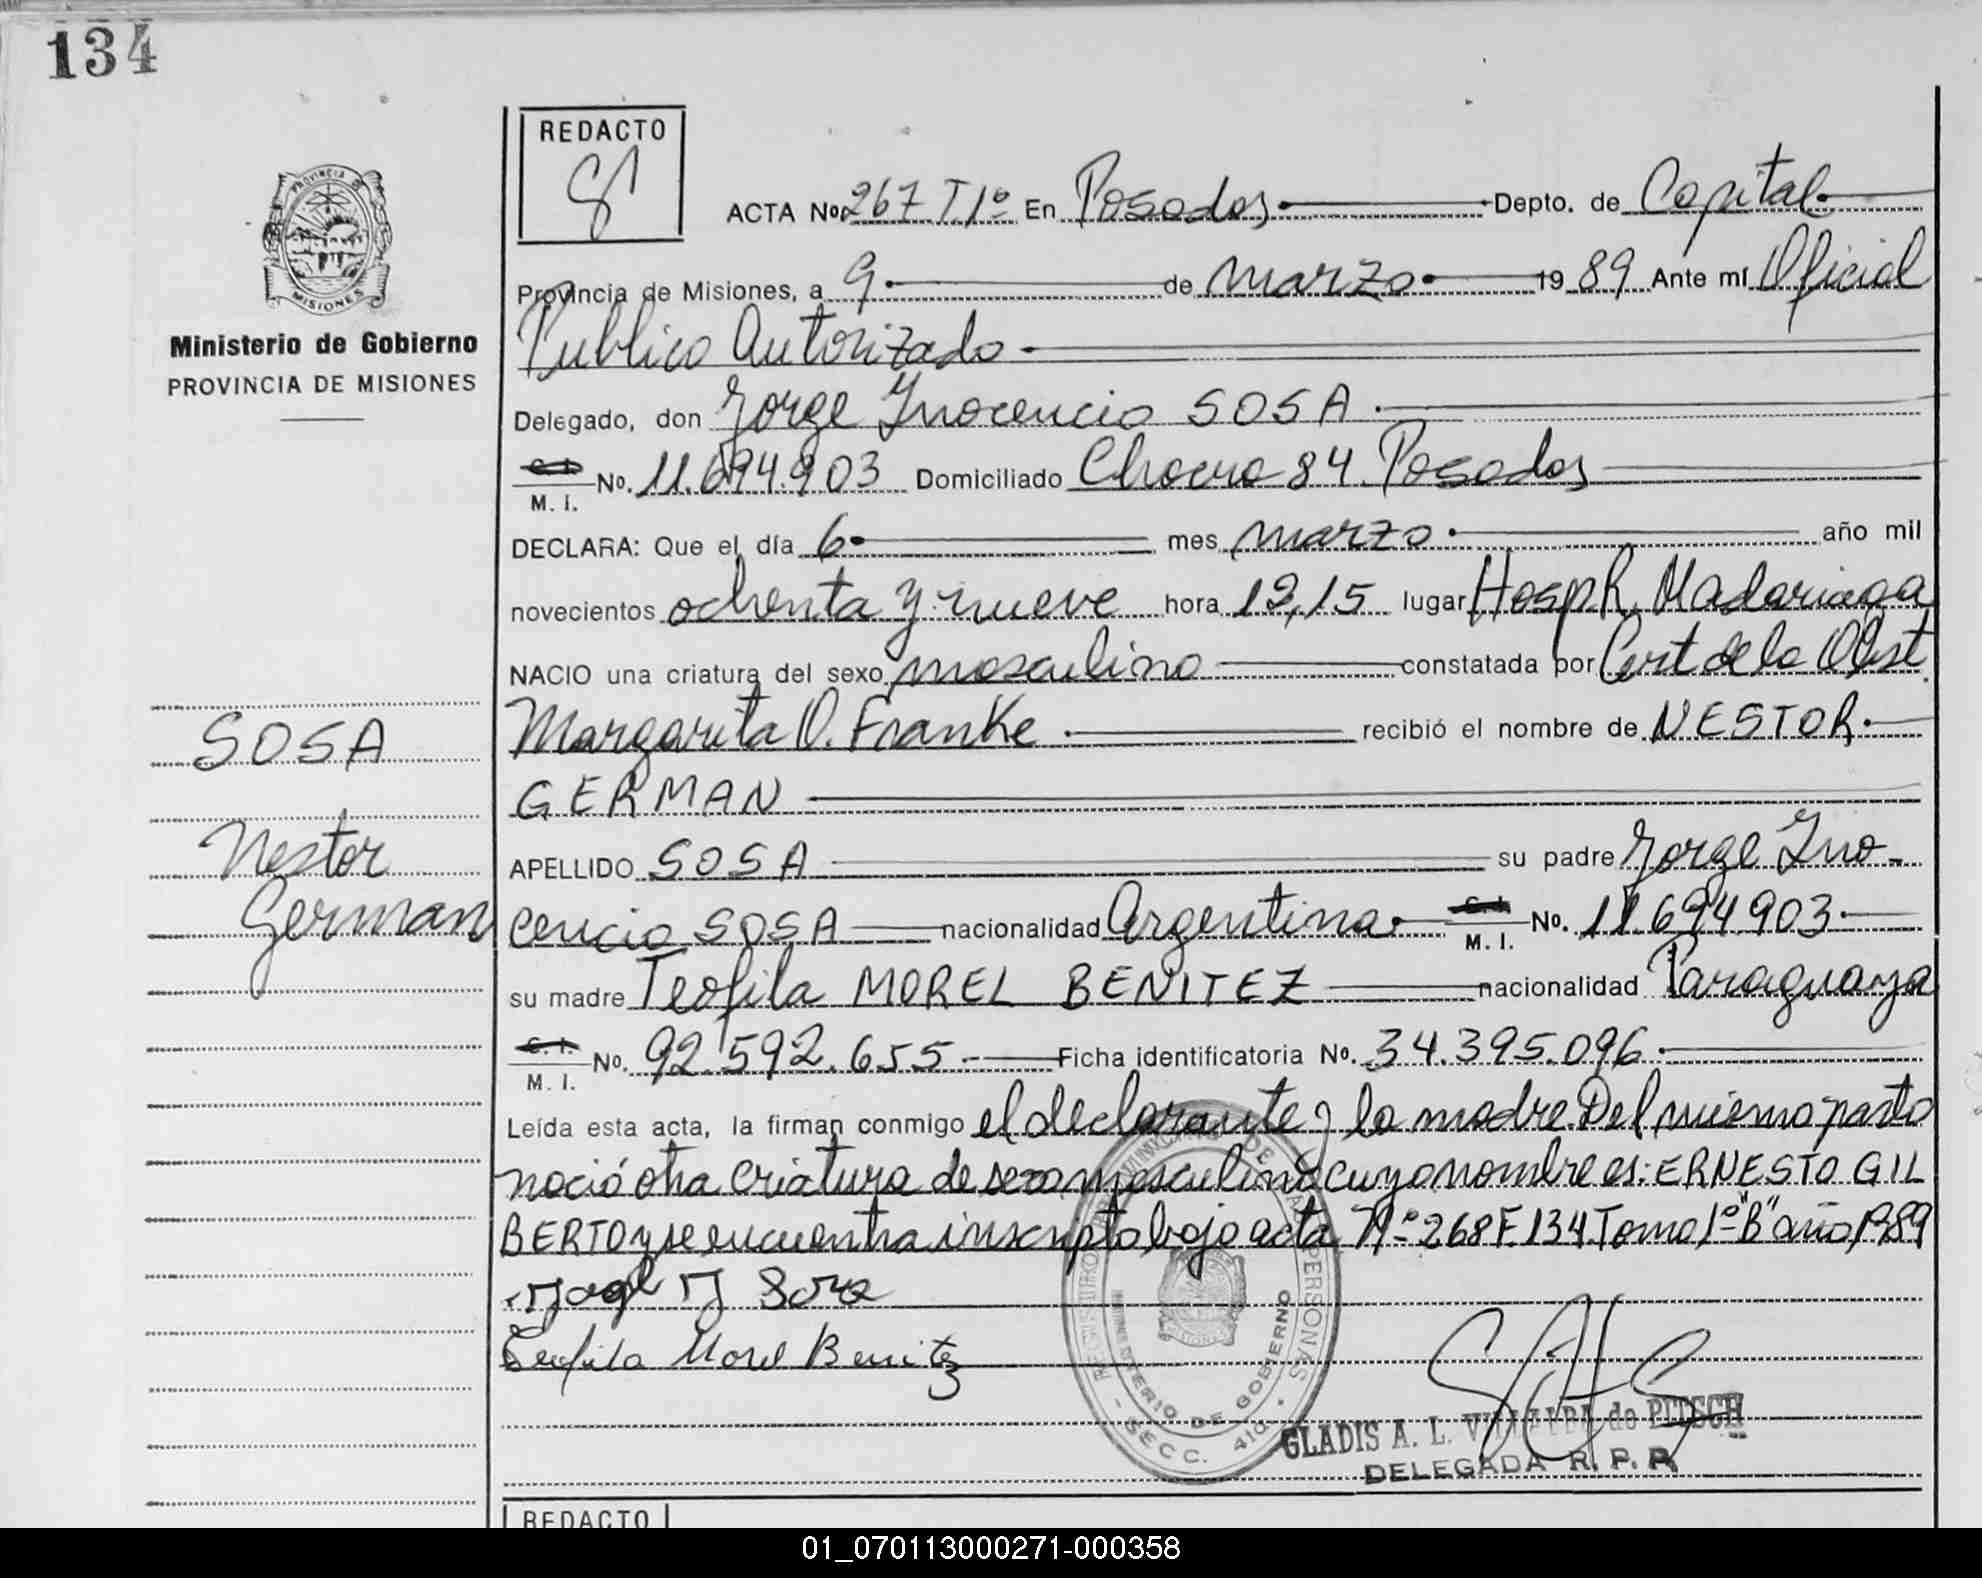 134
REDACTO
ACTA No. 267 T 1º En Posadas Depto. de Capital
PROVINCIA DE
MISIONES
Provincia de Misiones, a 9 de marzo 1989 Ante mí Oficial
Ministerio de Gobierno
PROVINCIA DE MISIONES
Publico Autorizado
Delegado, don Jorge Inocencio SOSA
C. I.
M. I. No. 11.694.903 Domiciliado 84 Posadas
DECLARA: Que el día 6 mes marzo año mil
novecientos ochenta y nueve hora 12,15 lugar Hosp. R. Madariaga
NACIO una criatura del sexo masculino constatada por Cert de la Obst.
Margarita O. Franke recibió el nombre de NESTOR
GERMAN
SOSA
Nestor
German
APELLIDO SOSA su padre Jorge Ino-
cencio SOSA nacionalidad Argentina C. I. M. I. No. 11.694.903
su madre Teofila MOREL BENITEZ nacionalidad Paraguaya
C. I.
M. I. No. 92.592.655 Ficha identificatoria No. 34.395.096
Leída esta acta, la firman conmigo el declarante y la madre. Del mismo parto
nació otra criatura de sexo masculino cuyo nombre es: ERNESTO GIL
BERTO y se encuentra inscripto bajo acta Nº 268 F. 134 Tomo 1º "B" año 1989
Sosa
Teofila Morel Benitez
MINISTERIO DE GOBIERNO
SECC. 410
GLADIS A. L. VILLALBA de PITSCH
DELEGADA R. P. P.
REDACTO
01_070113000271-000358